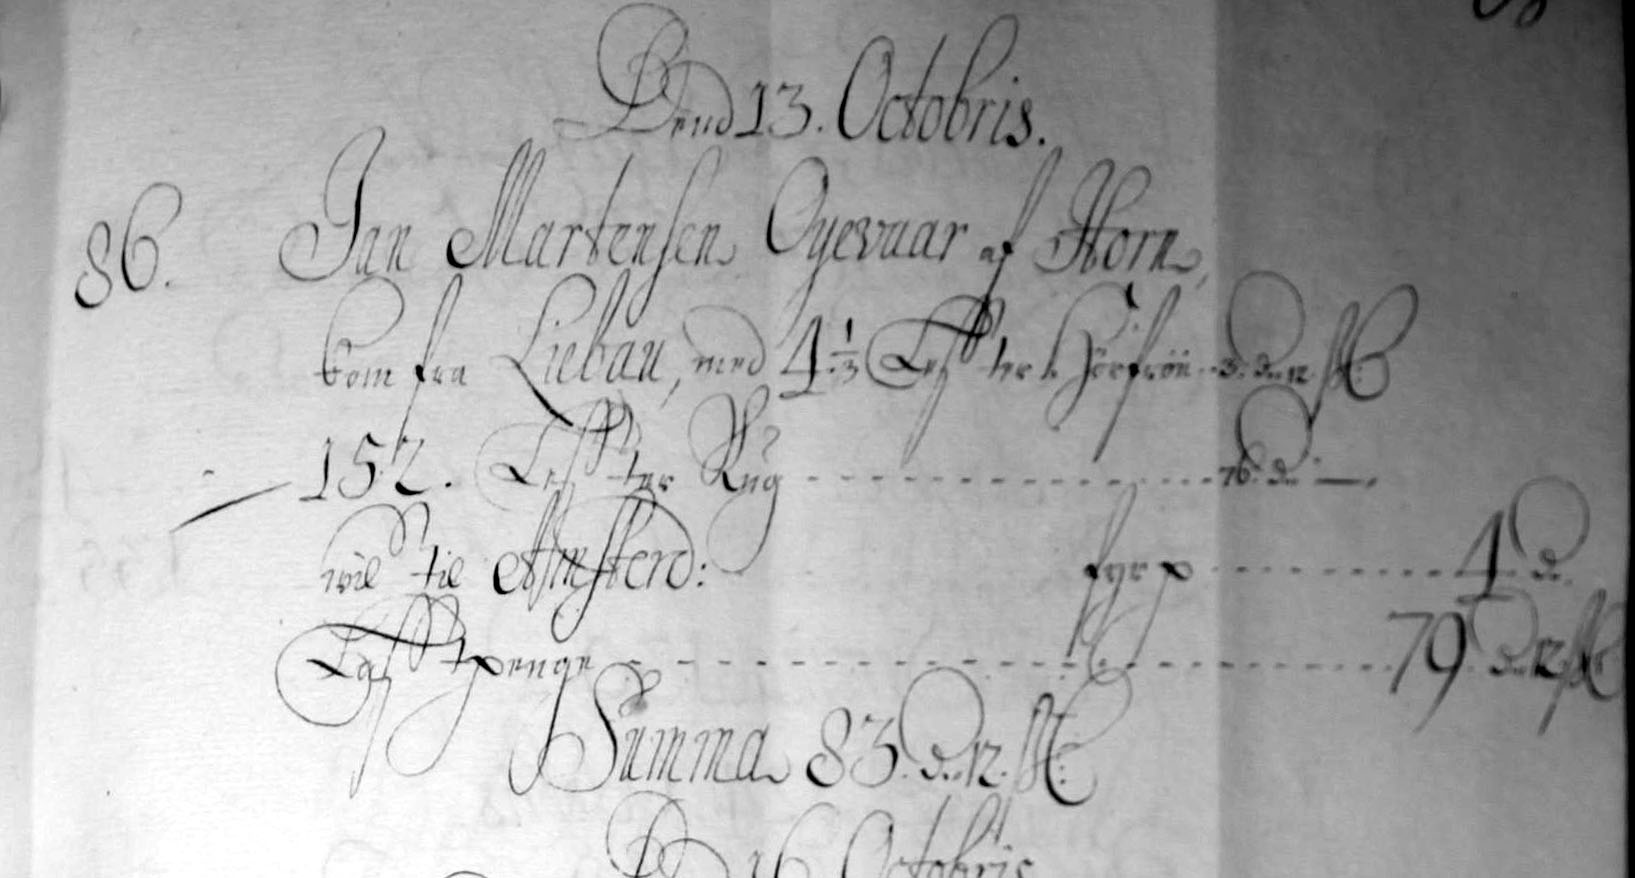 Dend 13. Octobris.
86. Jan Martensen Oyevaar af Horn,
kom fra Liebau, med 4 1/3 Lester Hörfröe 3. d. 12. ß
152. Lester Rug 76. d. —.
wil til Amsterd: fyrp 4 d.
Lastpenge 79 d. 12. ß
Summa 83 d. 12. ß
Dend 16 Octobris